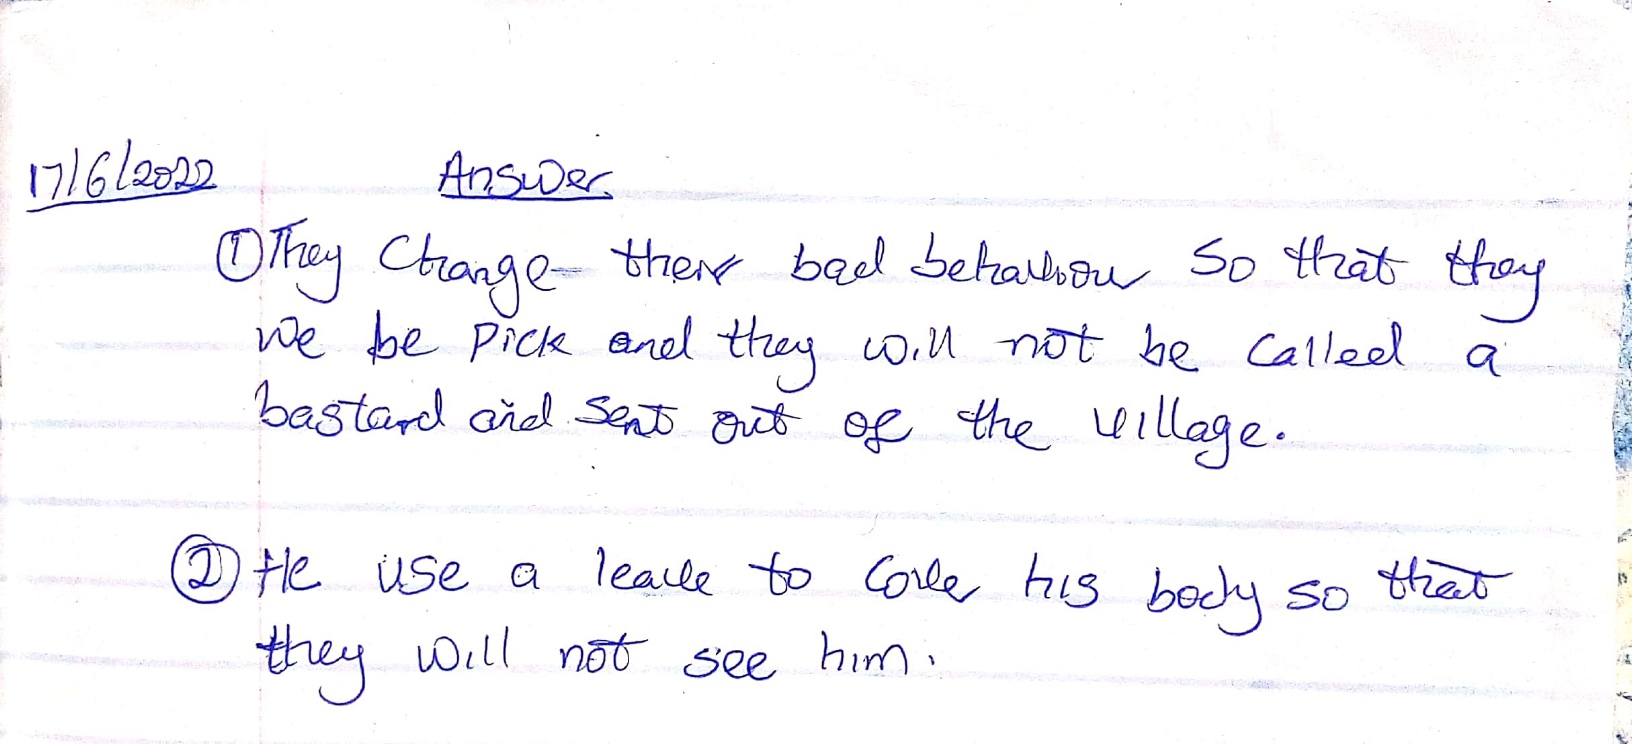 17/6/2022 Answer
① They Change there bad behaviour So that they
we be Pick and they will not be called a
bastard and sent out of the village.
② He use a leave to Cover his body so that
they will not see him.